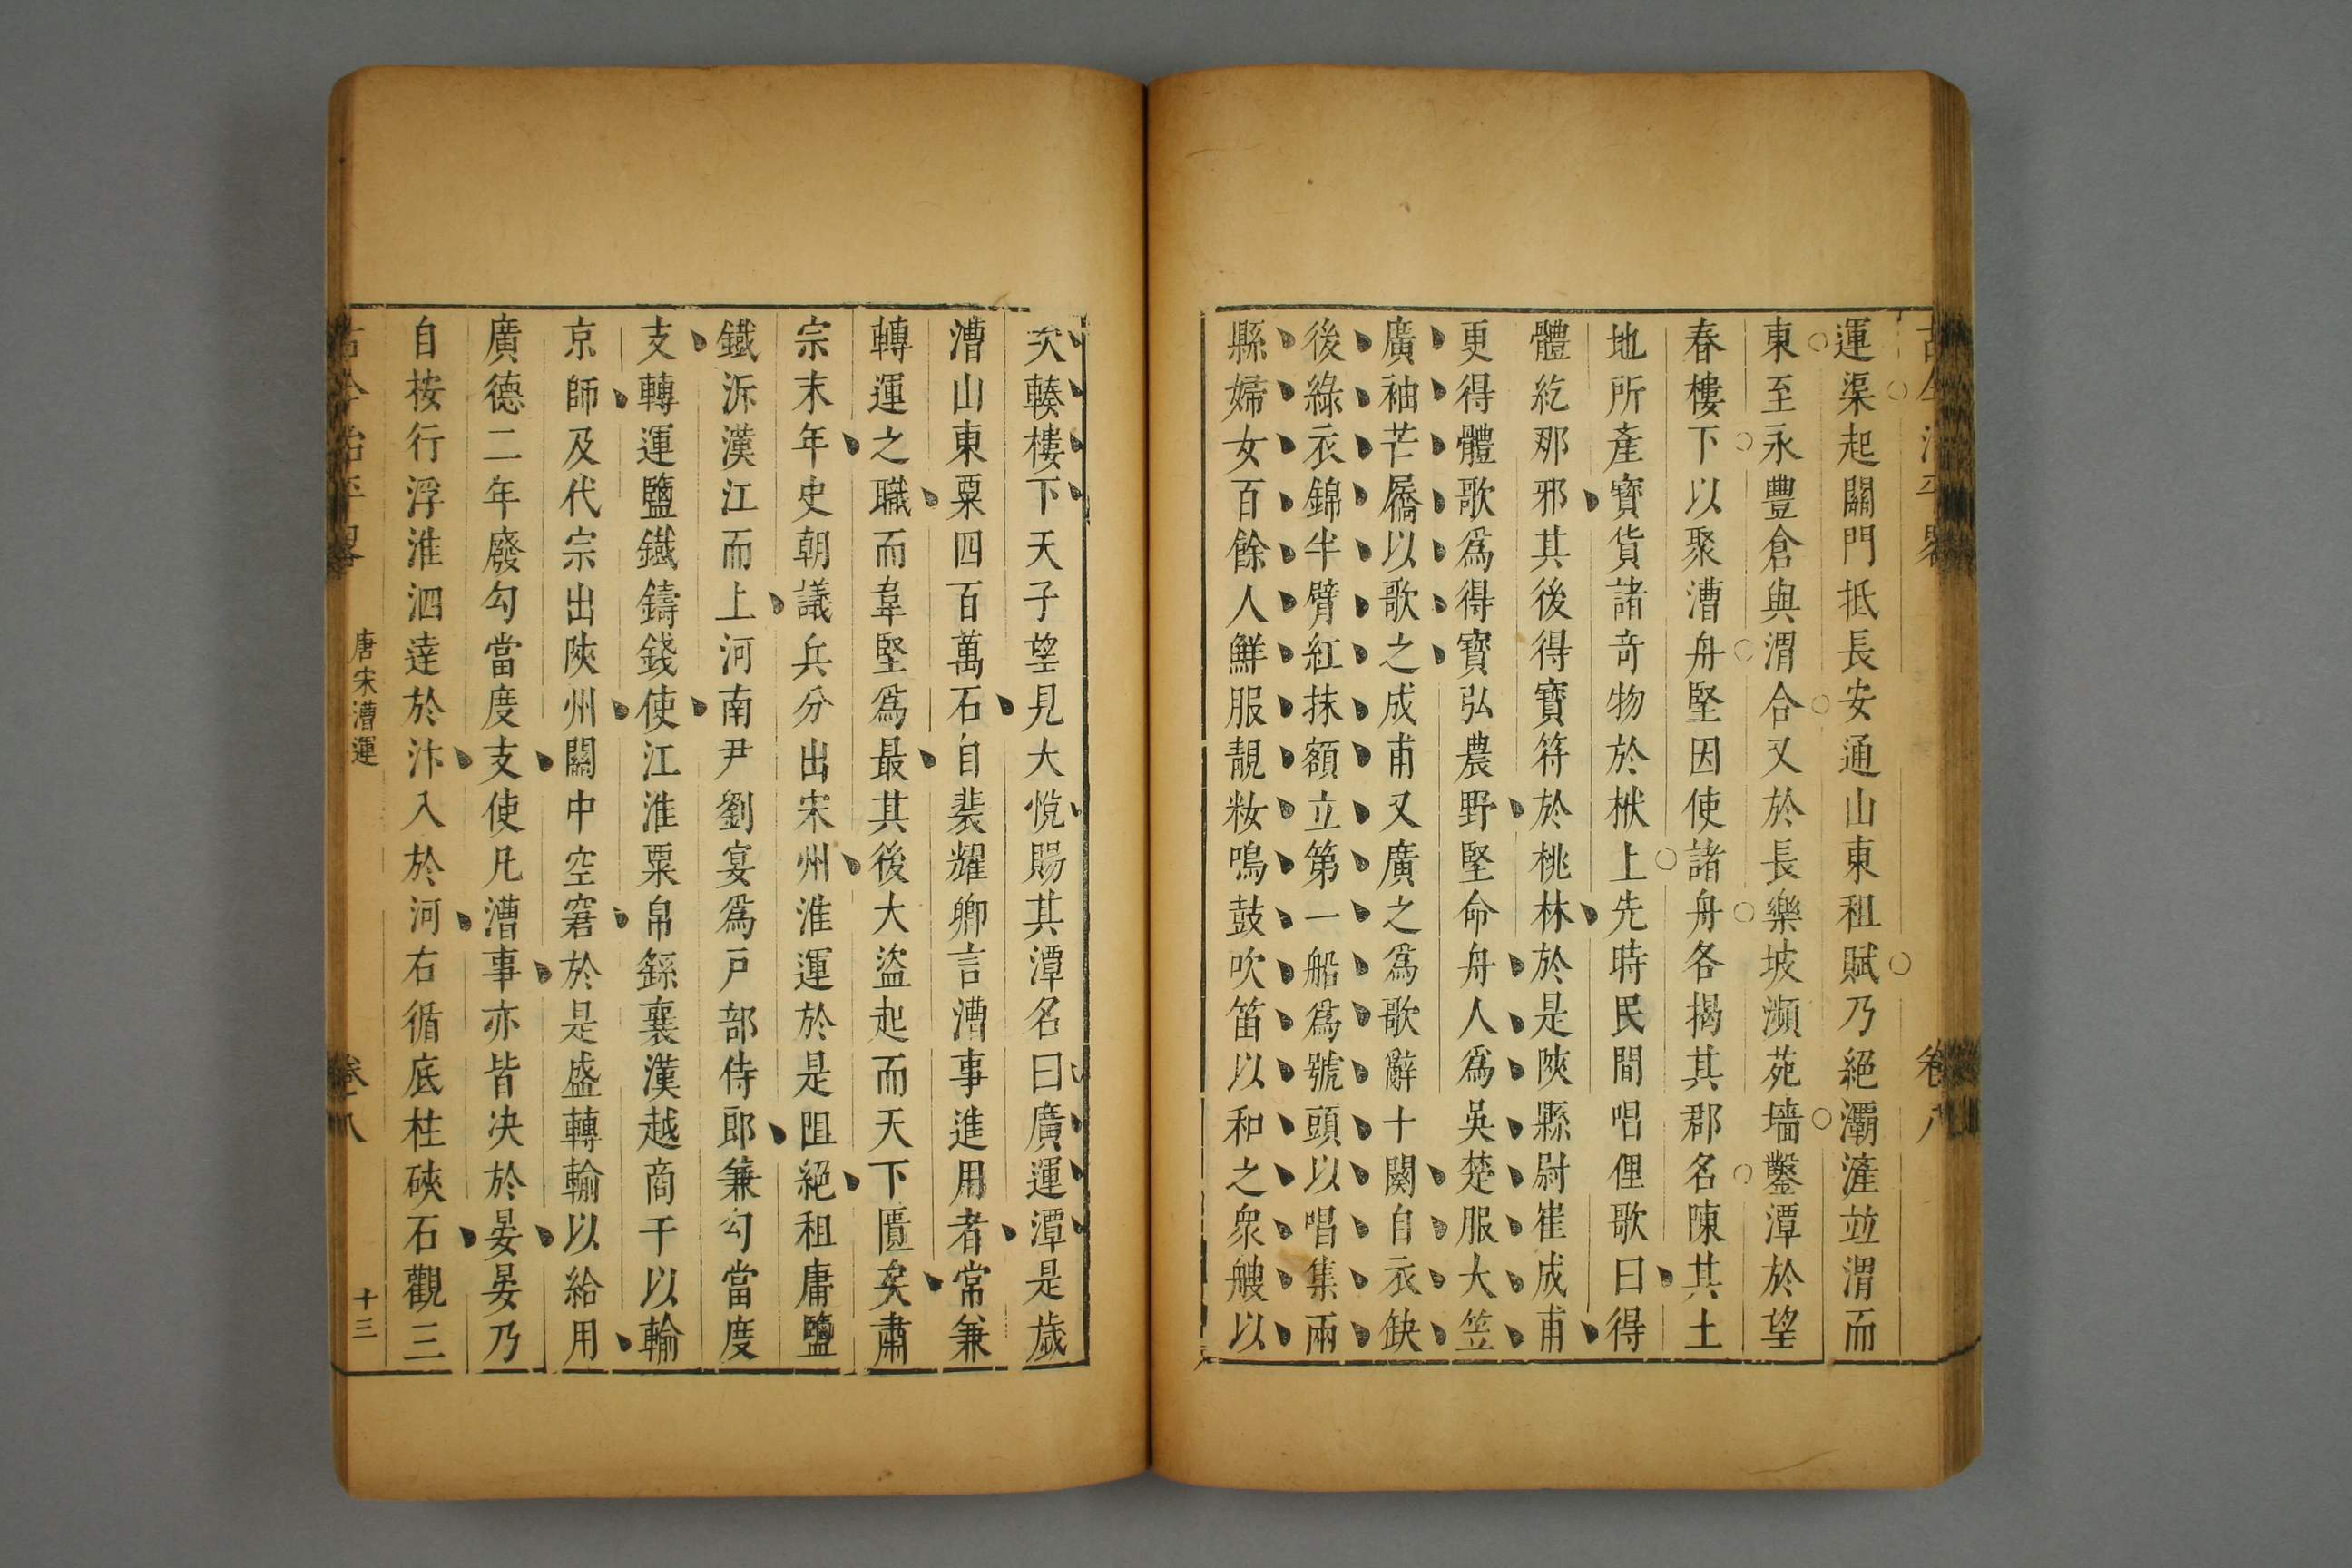 古今治平畧
卷八
運渠起關門抵長安通山東租賦乃絕灞滻竝渭而
東至永豐倉與渭合又於長樂坡瀕苑墻鑿潭於望
春樓下以聚漕舟堅因使諸舟各揭其郡名陳其土
地所產寶貨諸竒物於栿上先時民間唱俚歌曰得
體紇那邪其後得寶符於桃林於是陝縣尉崔成甫
更得體歌爲得寶弘農野堅命舟人爲吳楚服大笠
廣袖芒屩以歌之成甫又廣之爲歌辭十闋自衣缺
後綠衣錦半臂紅抹額立第一船爲號頭以唱集兩
縣婦女百餘人鮮服靚粧鳴鼓吹笛以和之衆艘以
次輳樓下天子望見大悅賜其潭名曰廣運潭是歲
漕山東粟四百萬石自裴耀卿言漕事進用者常兼
轉運之職而韋堅爲最其後大盜起而天下匱矣肅
宗末年史朝議兵分出宋州淮運於是阻絕租庸鹽
鐵泝漢江而上河南尹劉宴爲戸部侍郎兼勾當度
支轉運鹽鐵鑄錢使江淮粟帛繇襄漢越商于以輸
京師及代宗出陝州關中空窘於是盛轉輸以給用
廣德二年廢勾當度支使凡漕事亦皆决於晏晏乃
自按行浮淮泗達於汴入於河右循底柱硤石觀三
古今治平畧
唐宋漕運
卷八
十三